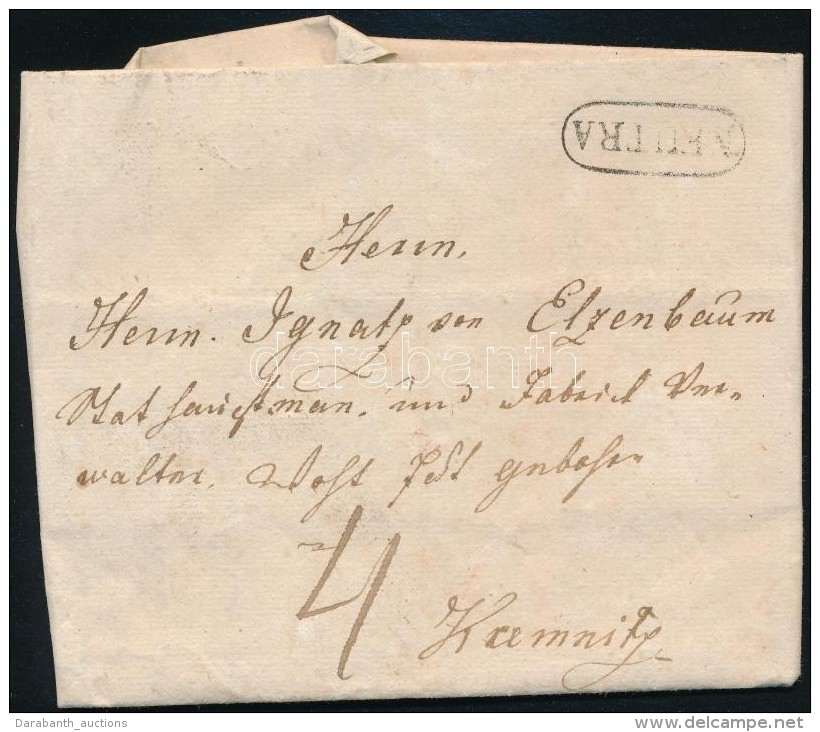 NEUTRA
Herrn,
Herrn. Ignatz von Elzenbaum
Stathauptman. und Fabrick Ver-
walter. Wohl gebohrn
4
Kremnitz
darabanth
Darabanth_auctions
delcampe.net